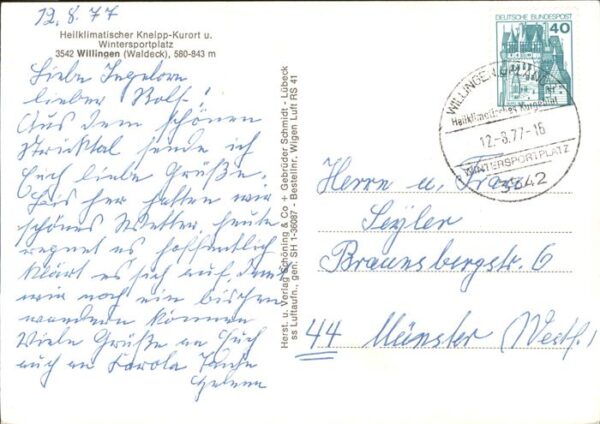 12.8.77
Heilklimatischer Kneipp-Kurort u.
Wintersportplatz
3542 Willingen (Waldeck), 580-843 m
Liebe Ingelore
lieber Rolf!
Aus dem schönen
Strycktal sende ich
Euch liebe Grüße.
Bis her hatten wir
schönes Wetter, heute
regnet es hoffentlich
klärt es sich auf, damit
wir noch ein bischen
wandern können
Viele Grüße an Euch
auch an Karola Tante
Helena
Herst. u. Verlag Schöning & Co + Gebrüder Schmidt - Lübeck
ss Luftaufn., gen: SH 1-36087 - Bestellnr. Wigen Luft RS 41
DEUTSCHE BUNDESPOST
40
WILLINGEN
Heilklimatisches
12.-8.77-16
WINTERSPORTPLATZ
3542
Herrn u. Frau
Seyler
Braunsbergstr. 6
44 Münster (Westf.)